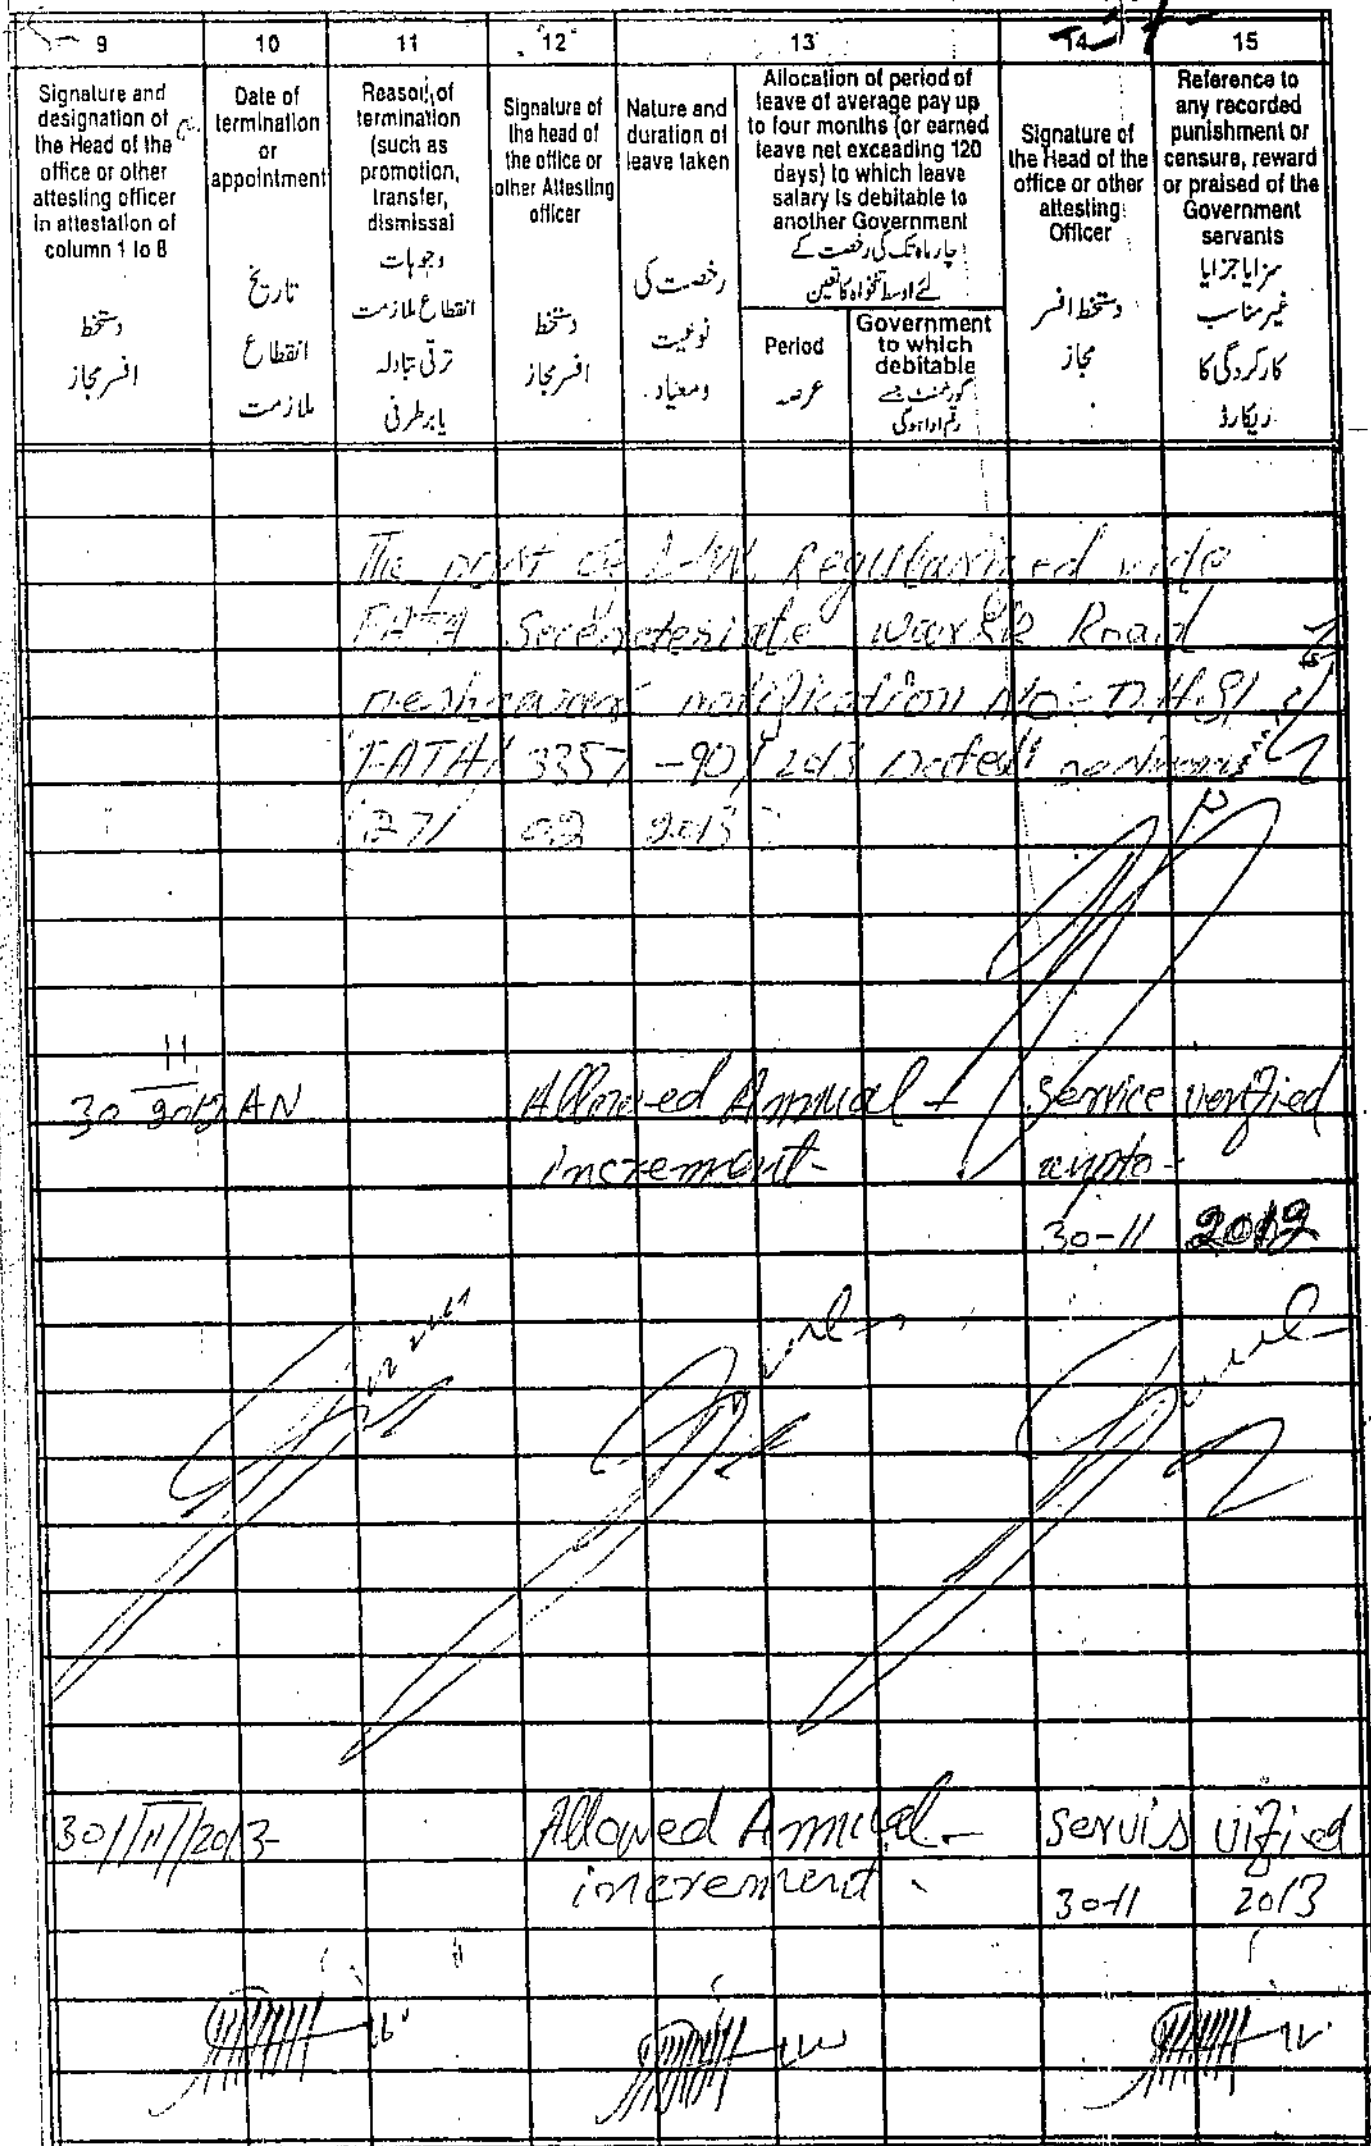 9 10 11 12 13 14 15
Signature and
designation of
the Head of the
office or other
attesting officer
in attestation of
column 1 to 8
دستخط
افسر مجاز
Date of
termination
or
appointment
تاریخ
انقطاع
ملازمت
Reason of
termination
(such as
promotion,
transfer,
dismissal
وجوہات
انقطاع ملازمت
ترقی تبادلہ
یا برطرفی
Signature of
the head of
the office or
other Attesting
officer
دستخط
افسر مجاز
Nature and
duration of
leave taken
رخصت کی
نوعیت
ومعیاد
Allocation of period of
leave of average pay up
to four months (or earned
leave net exceeding 120
days) to which leave
salary is debitable to
another Government
چار ماہ تک کی رخصت کے
لئے اوسط تنخواہ کا تعین
Period
عرصہ
Government
to which
debitable
گورنمنٹ جسے
رقم ادا ہوگی
Signature of
the Head of the
office or other
attesting
Officer
دستخط افسر
مجاز
Reference to
any recorded
punishment or
censure, reward
or praised of the
Government
servants
سزایا جزایا
غیر مناسب
کارکردگی کا
ریکارڈ
The post of Regularized vide
FATA Secreteriate Road
notification No:- D.H.S/
FATA/ 3357 -90/ 2013 Dated
27/ 02 2013
30 11 2012 AN Allowed Annual - Service verified
increment- upto-
30-11 2012
30/11/2013- Allowed Annual- Servis vified
increment 30-11 2013